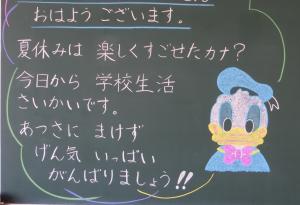 おはよう ございます。
夏休みは 楽しくすごせたカナ?
今日から 学校生活
さいかいです。
あつさに まけず
げん気 いっぱい
がんばりましょう!!